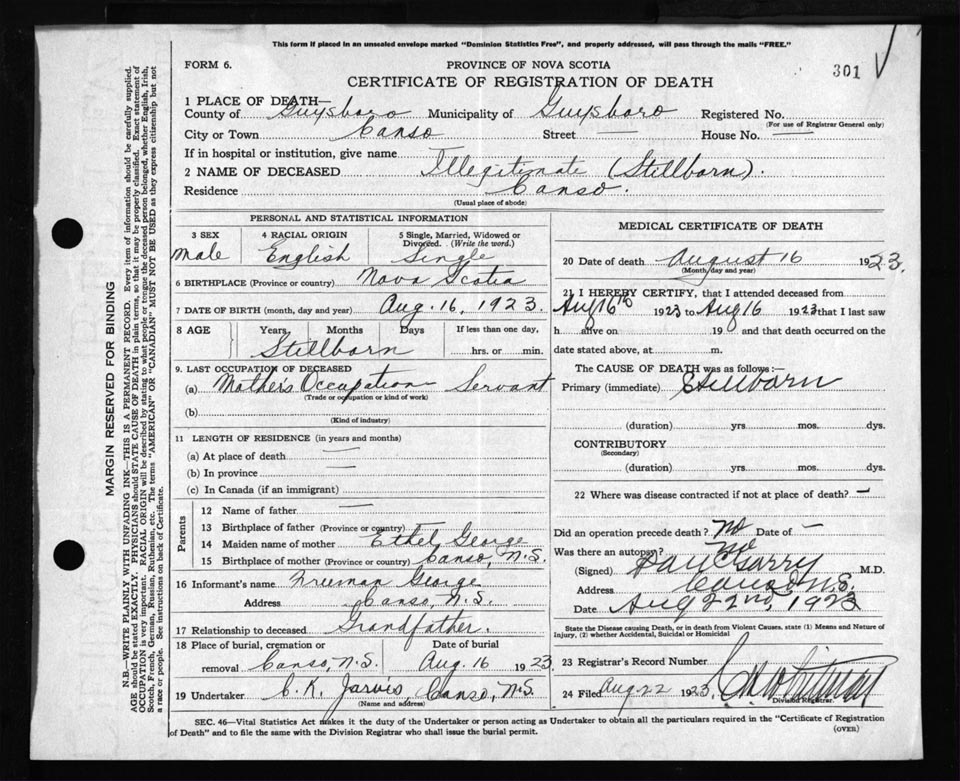 This form if placed in an unsealed envelope marked "Dominion Statistics Free", and properly addressed, will pass through the mails "FREE."
FORM 6.
PROVINCE OF NOVA SCOTIA
301
CERTIFICATE OF REGISTRATION OF DEATH
1 PLACE OF DEATH—
County of Guysboro Municipality of Guysboro Registered No.
(For use of Registrar General only)
City or Town Canso Street — House No. —
If in hospital or institution, give name
2 NAME OF DECEASED Illegitimate (Stillborn).
Residence Canso.
(Usual place of abode)
PERSONAL AND STATISTICAL INFORMATION
3 SEX 4 RACIAL ORIGIN 5 Single, Married, Widowed or Divorced. (Write the word.)
Male English Single
6 BIRTHPLACE (Province or country) Nova Scotia
7 DATE OF BIRTH (month, day and year) Aug. 16, 1923.
8 AGE Years Months Days If less than one day,
Stillborn hrs. or min.
9. LAST OCCUPATION OF DECEASED
(a) Mothers Occupation Servant
(Trade or occupation or kind of work)
(b)
(Kind of industry)
11 LENGTH OF RESIDENCE (in years and months)
(a) At place of death —
(b) In province —
(c) In Canada (if an immigrant)
Parents
12 Name of father —
13 Birthplace of father (Province or country) —
14 Maiden name of mother Ethel George
15 Birthplace of mother (Province or country) Canso, N.S.
16 Informant's name Freeman George
Address Canso, N.S.
17 Relationship to deceased Grandfather.
18 Place of burial, cremation or Date of burial
removal Canso, N.S. Aug. 16 1923
19 Undertaker C. K. Jarvis, Canso, N.S.
(Name and address)
MEDICAL CERTIFICATE OF DEATH
20 Date of death August 16 1923.
(Month, day and year)
21 I HEREBY CERTIFY, that I attended deceased from
Aug 16th 1923 to Aug 16 1923 that I last saw
h alive on 19 and that death occurred on the
date stated above, at m.
The CAUSE OF DEATH was as follows:—
Primary (immediate) Stillborn
(duration) yrs. mos. dys.
CONTRIBUTORY
(Secondary)
(duration) yrs. mos. dys.
22 Where was disease contracted if not at place of death? —
Did an operation precede death? No Date of —
Was there an autopsy? No
(Signed) M.D.
Address Canso N.S.
Date Aug 22nd, 1923
State the Disease causing Death, or in death from Violent Causes, state (1) Means and Nature of Injury, (2) whether Accidental, Suicidal or Homicidal
23 Registrar's Record Number
24 Filed Aug 22 1923,
Division Registrar.
SEC. 46—Vital Statistics Act makes it the duty of the Undertaker or person acting as Undertaker to obtain all the particulars required in the "Certificate of Registration
of Death" and to file the same with the Division Registrar who shall issue the burial permit.
(OVER)
MARGIN RESERVED FOR BINDING
N.B.—WRITE PLAINLY WITH UNFADING INK—THIS IS A PERMANENT RECORD. Every item of information should be carefully supplied.
AGE should be stated EXACTLY. PHYSICIANS should STATE CAUSE OF DEATH in plain terms, so that it may be properly classified. Exact statement of
OCCUPATION is very important. RACIAL ORIGIN will be described by stating to what people or tongue the deceased person belonged, whether English, Irish,
Scotch, French, German, Russian, Ruthenian, etc. The terms "AMERICAN" OR "CANADIAN" MUST NOT BE USED as they express citizenship but not
a race or people. See instructions on back of Certificate.